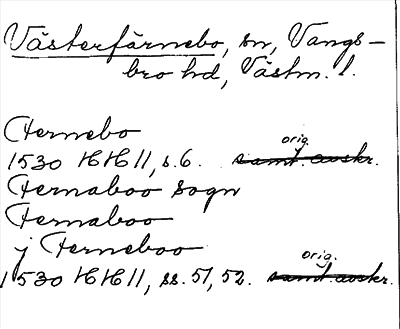 Västerfärnebo, sn, Vangs-
bro hd, Västm. l.
Fernebo
orig.
1530 HH II, s. 6. samt. avskr.
Fernaboo sogn
Fernaboo
j Ferneboo
orig.
1530 HH II, ss. 51, 52. samt. avskr.